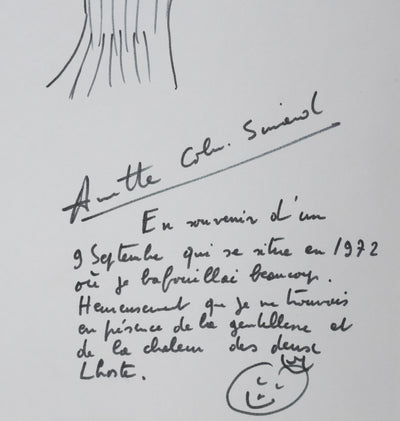 Annette Colin. Simard
En souvenir d'un
9 Septembre qui se situe en 1972
où je bafouillai beaucoup.
Heureusement que je me trouvais
en présence de la gentillesse et
de la chaleur des deux
Lhoste.